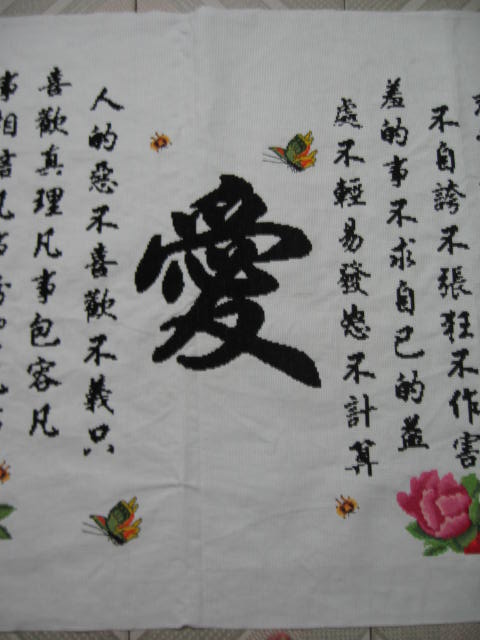 不自誇不張狂不作害
羞的事不求自己的益
處不輕易發怒不計算
愛
人的惡不喜歡不義只
喜歡真理凡事包容凡
事相